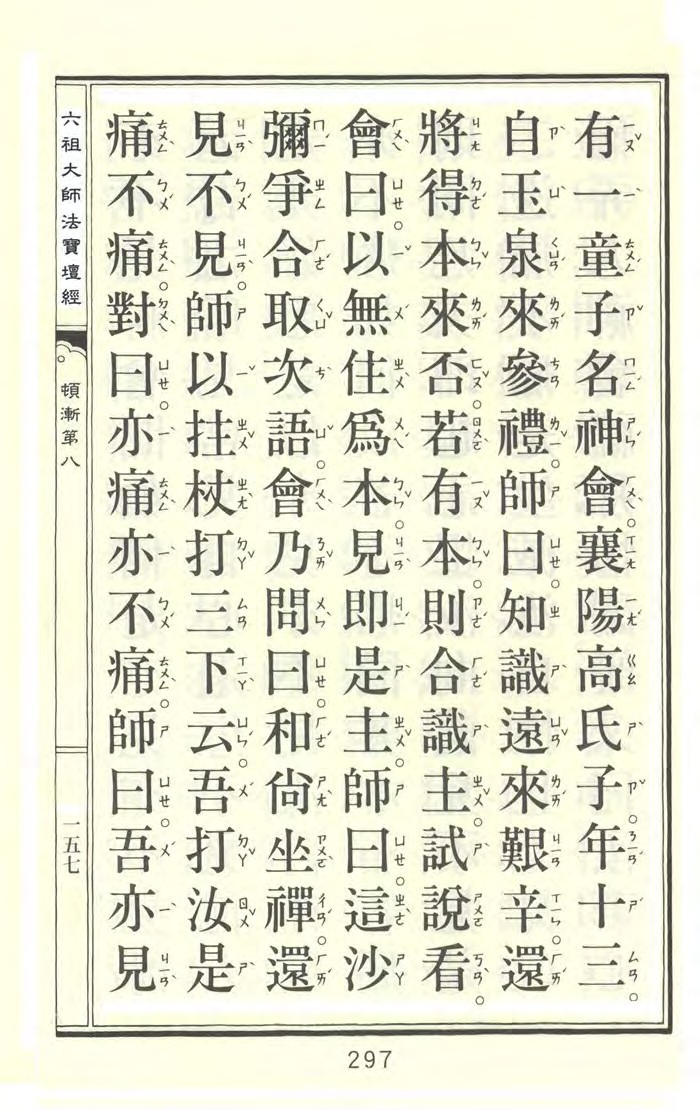 有一童子名神會。襄陽高氏子。年十三。
自玉泉來參禮。師曰。知識遠來艱辛。還
將得本來否。若有本。則合識主。試說看。
會曰。以無住爲本。見即是主。師曰。這沙
彌爭合取次語。會乃問曰。和尚坐禪。還
見不見。師以拄杖打三下。云。吾打汝是
痛不痛。對曰。亦痛亦不痛。師曰。吾亦見
六祖大師法寶壇經
頓漸第八
一五七
297